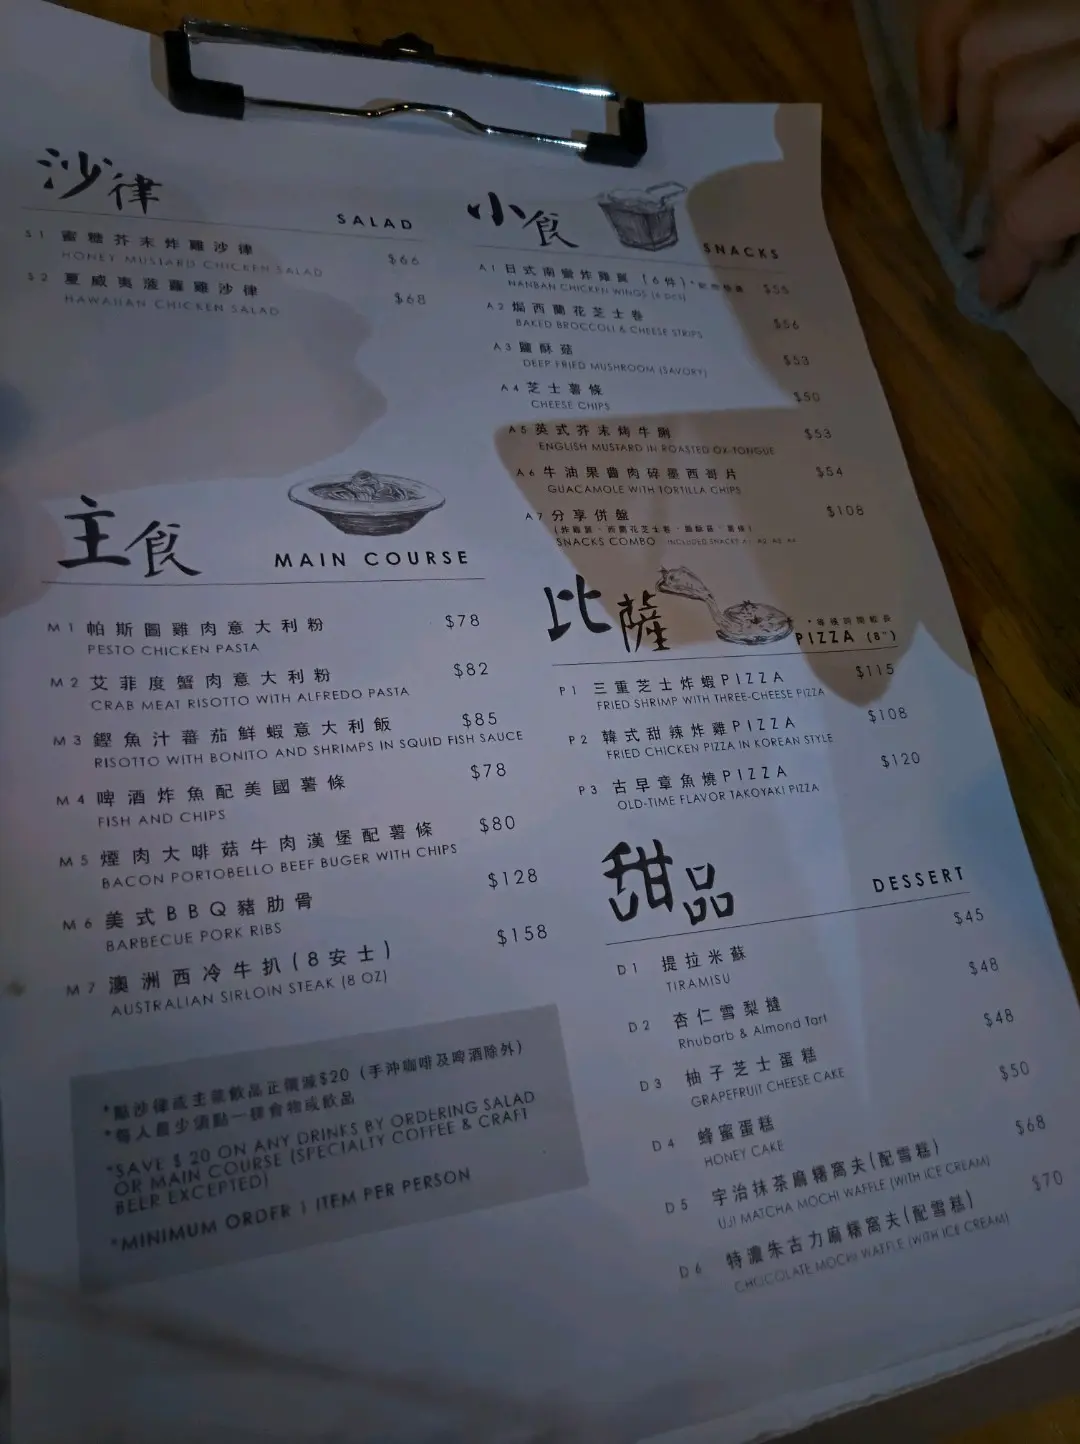 沙律
SALAD
S1 蜜糖芥末炸雞沙律 $66
HONEY MUSTARD CHICKEN SALAD
S2 夏威夷菠蘿雞沙律 $68
HAWAIIAN CHICKEN SALAD
主食
MAIN COURSE
M1 帕斯圖雞肉意大利粉 $78
PESTO CHICKEN PASTA
M2 艾菲度蟹肉意大利粉 $82
CRAB MEAT RISOTTO WITH ALFREDO PASTA
M3 鰹魚汁蕃茄鮮蝦意大利飯 $85
RISOTTO WITH BONITO AND SHRIMPS IN SQUID FISH SAUCE
M4 啤酒炸魚配美國薯條 $78
FISH AND CHIPS
M5 煙肉大啡菇牛肉漢堡配薯條 $80
BACON PORTOBELLO BEEF BUGER WITH CHIPS
M6 美式BBQ豬肋骨 $128
BARBECUE PORK RIBS
M7 澳洲西冷牛扒(8安士) $158
AUSTRALIAN SIRLOIN STEAK (8 OZ)
*點沙律或主食飲品正價減$20 (手沖咖啡及啤酒除外)
*每人最少須點一樣食物或飲品
*SAVE $ 20 ON ANY DRINKS BY ORDERING SALAD
OR MAIN COURSE (SPECIALTY COFFEE & CRAFT
BEER EXCEPTED)
*MINIMUM ORDER 1 ITEM PER PERSON
小食
SNACKS
A1 日式南蠻炸雞翼 (6件) $55
NANBAN CHICKEN WINGS (6 PCS)
A2 焗西蘭花芝士卷 $56
BAKED BROCCOLI & CHEESE STRIPS
A3 鹽酥菇 $53
DEEP FRIED MUSHROOM (SAVORY)
A4 芝士薯條 $50
CHEESE CHIPS
A5 英式芥末烤牛脷 $53
ENGLISH MUSTARD IN ROASTED OX-TONGUE
A6 牛油果醬肉碎墨西哥片 $54
GUACAMOLE WITH TORTILLA CHIPS
A7 分享併盤 $108
(炸雞翼·西蘭花芝士卷·鹽酥菇·薯條)
SNACKS COMBO INCLUDED SNACKS A1 A2 A3 A4
比薩
*等候時間較長
PIZZA (8")
P1 三重芝士炸蝦PIZZA $115
FRIED SHRIMP WITH THREE-CHEESE PIZZA
P2 韓式甜辣炸雞PIZZA $108
FRIED CHICKEN PIZZA IN KOREAN STYLE
P3 古早章魚燒PIZZA $120
OLD-TIME FLAVOR TAKOYAKI PIZZA
甜品
DESSERT
D1 提拉米蘇 $45
TIRAMISU
D2 杏仁雪梨撻 $48
Rhubarb & Almond Tart
D3 柚子芝士蛋糕 $48
GRAPEFRUIT CHEESE CAKE
D4 蜂蜜蛋糕 $50
HONEY CAKE
D5 宇治抹茶麻糬窩夫(配雪糕) $68
UJI MATCHA MOCHI WAFFLE (WITH ICE CREAM)
D6 特濃朱古力麻糬窩夫(配雪糕) $70
CHOCOLATE MOCHI WAFFLE (WITH ICE CREAM)